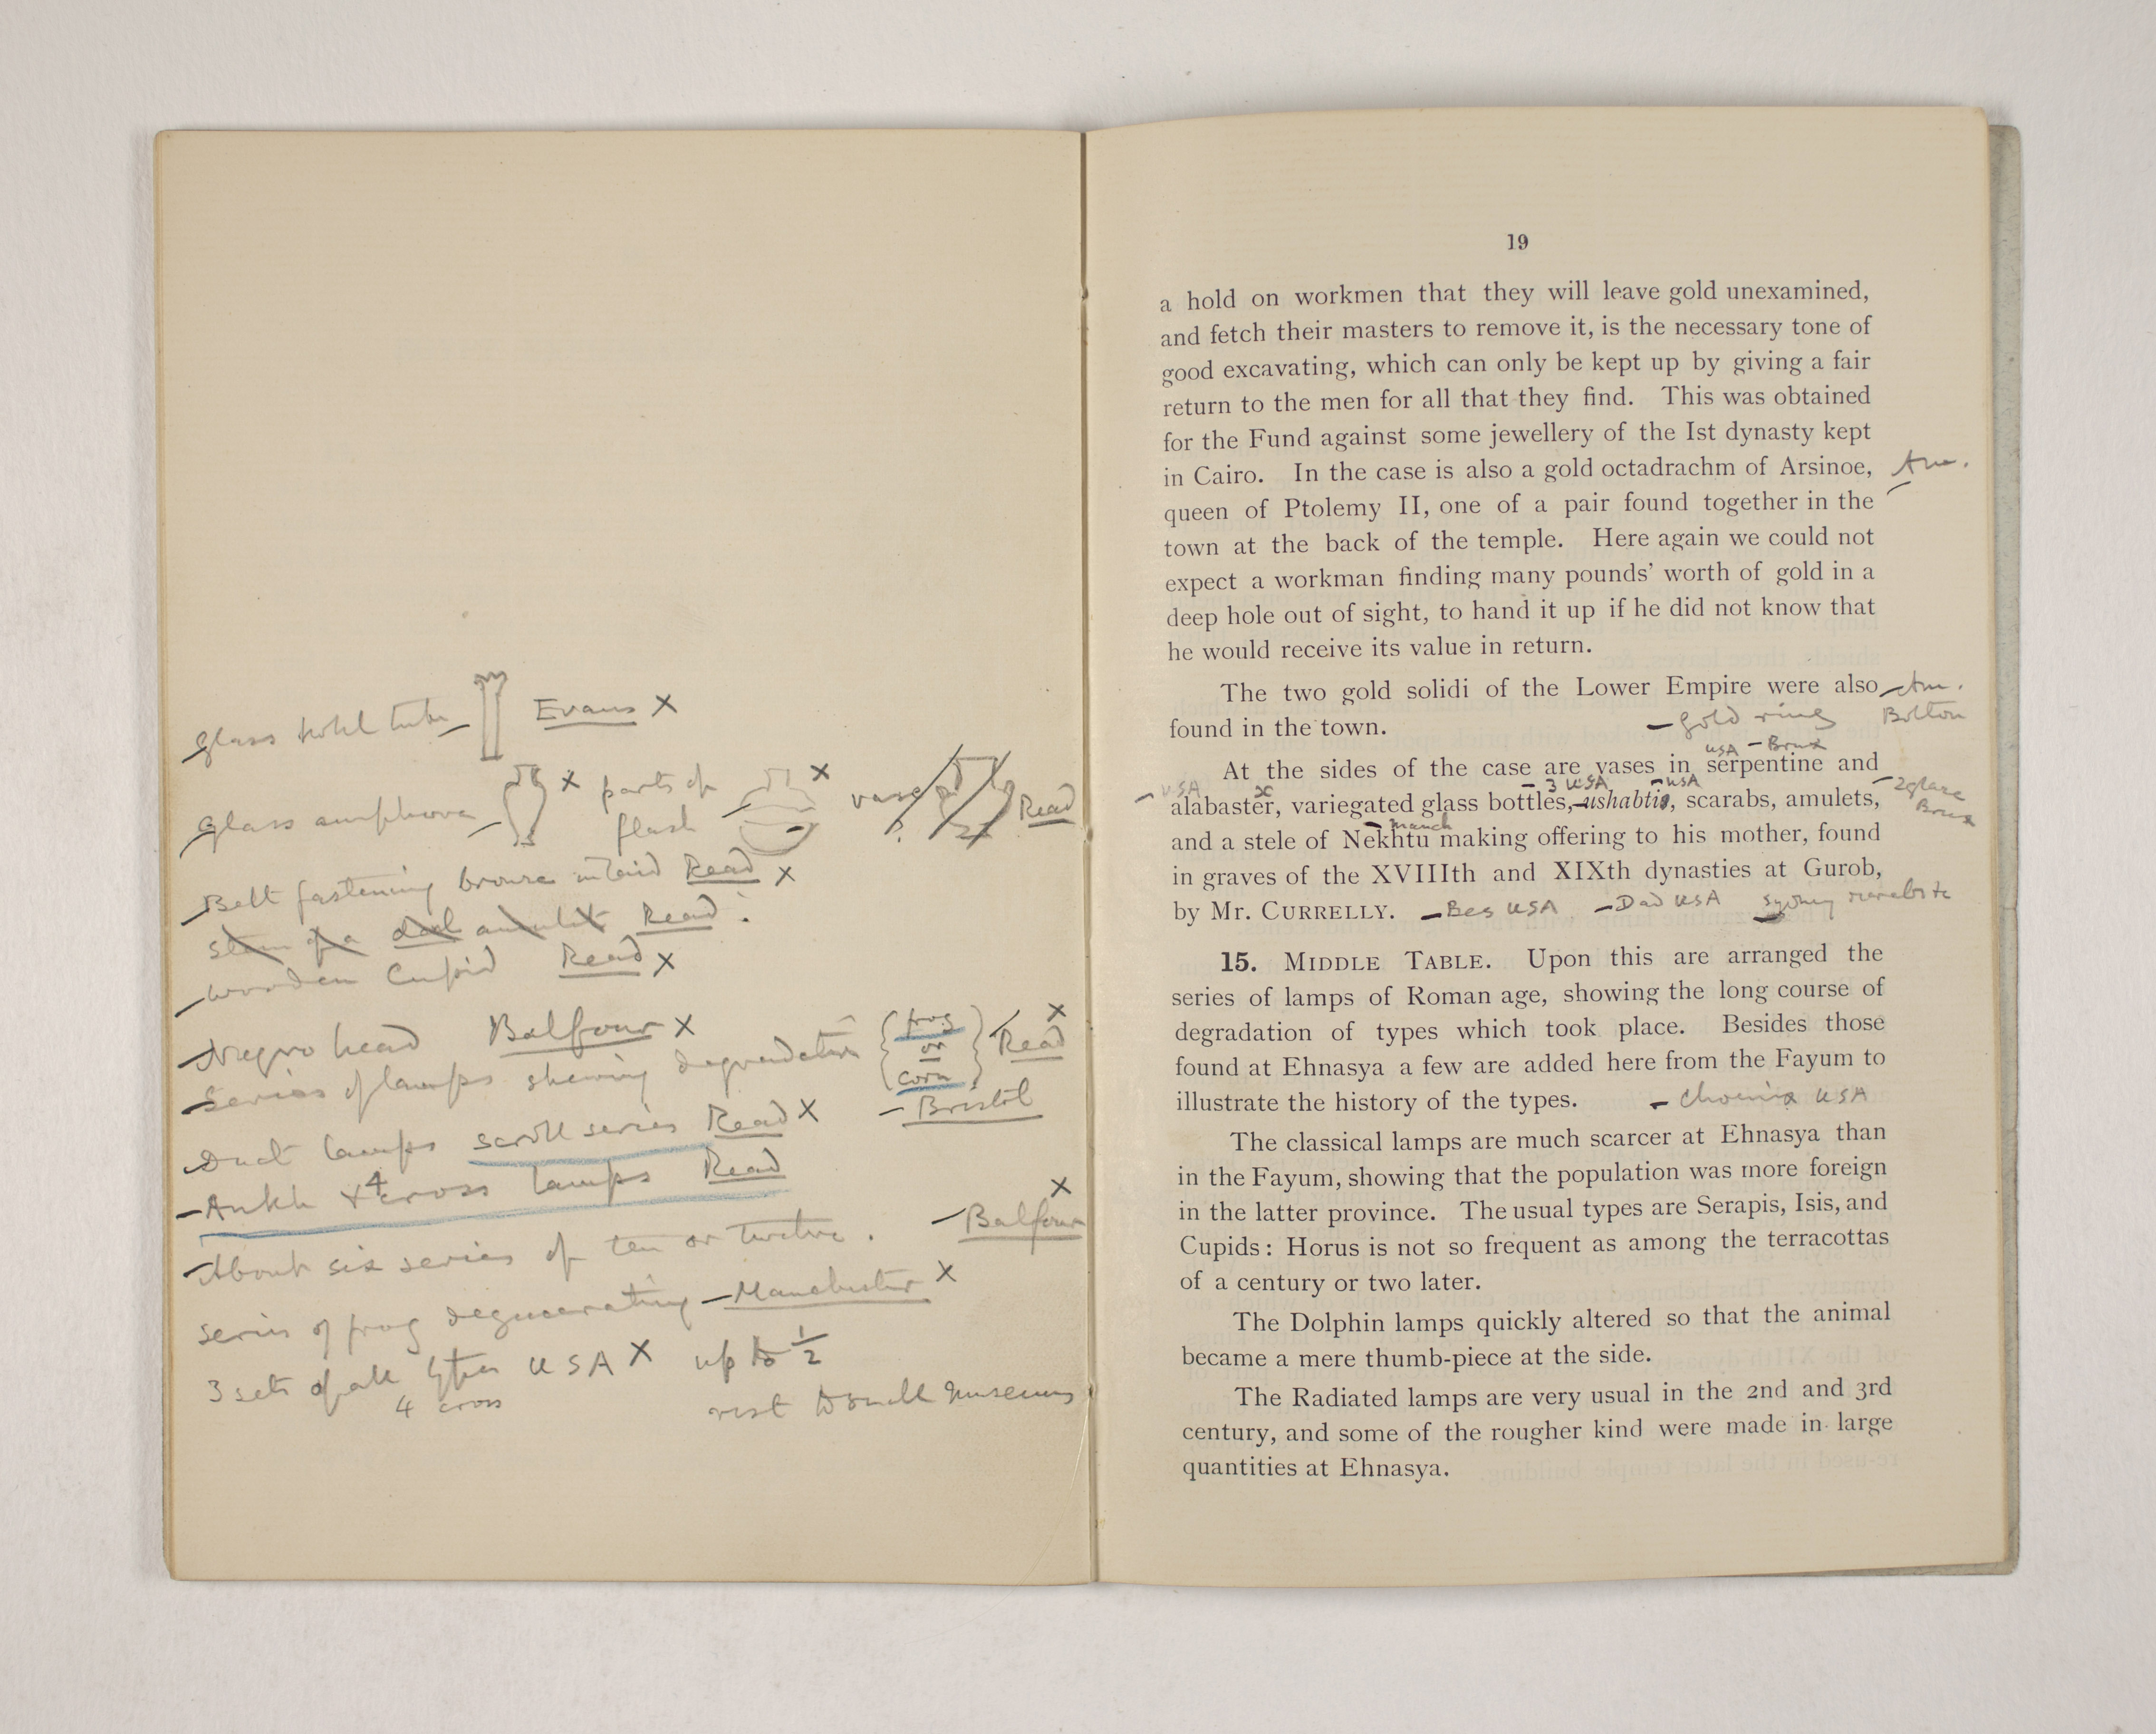 Glass kohl tube Evans X
Glass amphora X parts of flask X vase ? Read
Belt fastening bronze inlaid Read X
stem of a dad amulet Read
wooden Cupid Read X
Negro head Balfour X
Series of lamps shewing degradation { frog or corn } Read X
- Bristol
Duct lamps scroll series Read X
- Ankh + 4 cross lamps Read
About six series of ten or twelve . - Balfour X
series of frog degenerating - Manchester X
3 sets of all types USA X up to ½
4 cross rest to small museums
19
a hold on workmen that they will leave gold unexamined,
and fetch their masters to remove it, is the necessary tone of
good excavating, which can only be kept up by giving a fair
return to the men for all that they find. This was obtained
for the Fund against some jewellery of the Ist dynasty kept
in Cairo. In the case is also a gold octadrachm of Arsinoe, Am.
queen of Ptolemy II, one of a pair found together in the
town at the back of the temple. Here again we could not
expect a workman finding many pounds' worth of gold in a
deep hole out of sight, to hand it up if he did not know that
he would receive its value in return.
The two gold solidi of the Lower Empire were also - Am.
found in the town. - gold ring Bolton
USA - Brux
At the sides of the case are vases in serpentine and
- USA x - 3 USA - USA - 2 glaze Brux
alabaster, variegated glass bottles, ushabtis, scarabs, amulets,
- Manch
and a stele of Nekhtu making offering to his mother, found
in graves of the XVIIIth and XIXth dynasties at Gurob,
by Mr. CURRELLY. - Bes USA - Dad USA Sydney scarabs te
15. MIDDLE TABLE. Upon this are arranged the
series of lamps of Roman age, showing the long course of
degradation of types which took place. Besides those
found at Ehnasya a few are added here from the Fayum to
illustrate the history of the types. - Choenix USA
The classical lamps are much scarcer at Ehnasya than
in the Fayum, showing that the population was more foreign
in the latter province. The usual types are Serapis, Isis, and
Cupids : Horus is not so frequent as among the terracottas
of a century or two later.
The Dolphin lamps quickly altered so that the animal
became a mere thumb-piece at the side.
The Radiated lamps are very usual in the 2nd and 3rd
century, and some of the rougher kind were made in large
quantities at Ehnasya.